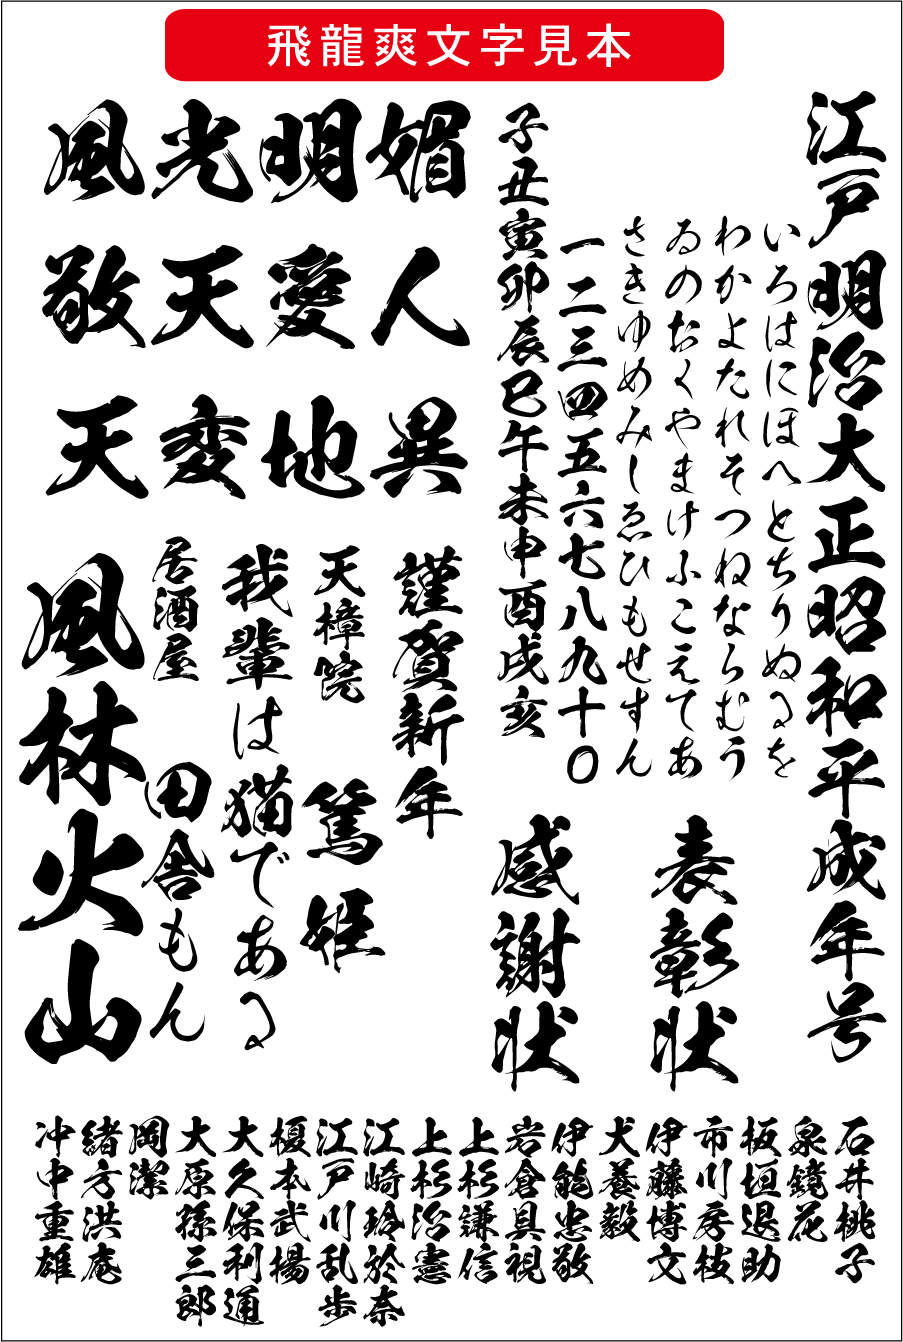 飛龍爽文字見本
江戸明治大正昭和平成年号
いろはにほへとちりぬるを
わかよたれそつねならむう
ゐのおくやまけふこえてあ
さきゆめみしゑひもせすん
一二三四五六七八九十〇
子丑寅卯辰巳午未申酉戌亥
表彰状
感謝状
風光明媚
敬天愛人
天変地異
謹賀新年
天樟院
篤姫
我輩は猫である
居酒屋
田舎もん
風林火山
石井桃子
泉鏡花
板垣退助
市川房枝
伊藤博文
犬養毅
伊能忠敬
岩倉具視
上杉謙信
上杉治憲
江崎玲於奈
江戸川乱歩
榎本武揚
大久保利通
大原孫三郎
岡潔
緒方洪庵
沖中重雄